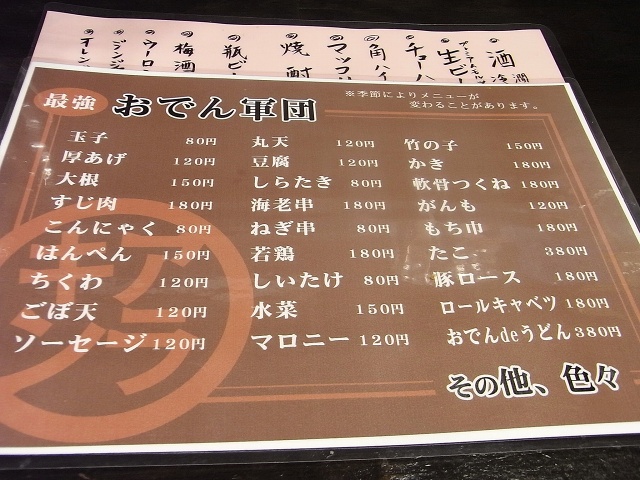 酒
生ビ
プレミアムモルツ
チューハ
角ハイ
マッコ
焼酎
瓶ビー
梅酒
ウーロン
ジンジ
オレン
最強 おでん軍団
※季節によりメニューが
変わることがあります。
玉子 80円
厚あげ 120円
大根 150円
すじ肉 180円
こんにゃく 80円
はんぺん 150円
ちくわ 120円
ごぼ天 120円
ソーセージ 120円
丸天 120円
豆腐 120円
しらたき 80円
海老串 180円
ねぎ串 80円
若鶏 180円
しいたけ 80円
水菜 150円
マロニー 120円
竹の子 150円
かき 180円
軟骨つくね 180円
がんも 120円
もち巾 180円
たこ 380円
豚ロース 180円
ロールキャベツ 180円
おでんdeうどん 380円
その他、色々